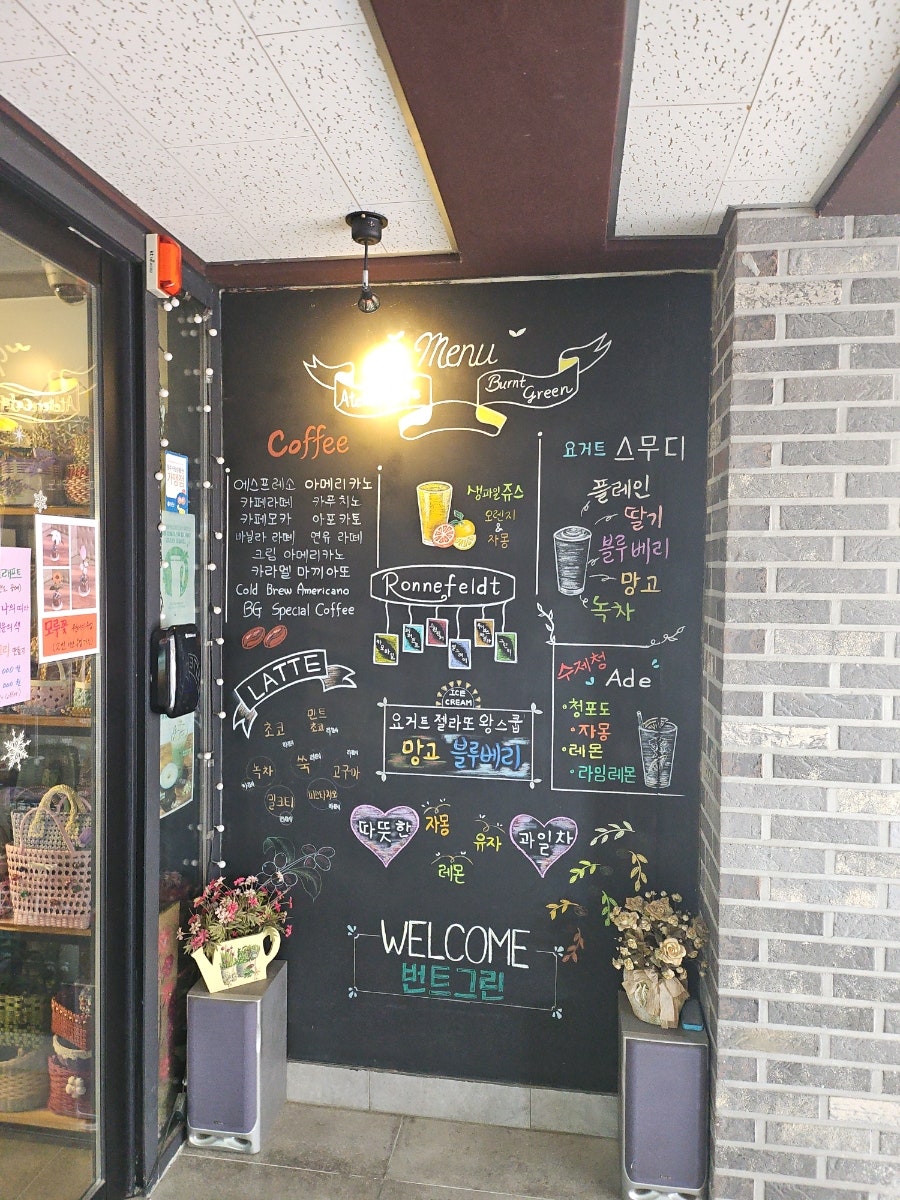 Menu
Burnt
Green
Coffee
에스프레소 아메리카노
카페라떼 카푸치노
카페모카 아포카토
바닐라 라떼 연유 라떼
크림 아메리카노
카라멜 마끼아또
Cold Brew Americano
BG Special Coffee
생과일 쥬스
오렌지
&
자몽
요거트 스무디
플레인
딸기
블루베리
망고
녹차
Ronnefeldt
LATTE
초코
민트
초코
녹차
쑥
고구마
밀크티
피스타치오
ICE
CREAM
요거트 젤라또 왕스쿱
망고 블루베리
수제청
Ade
청포도
자몽
레몬
라임레몬
따뜻한
자몽
유자
과일차
레몬
WELCOME
번트그린
모루꽃